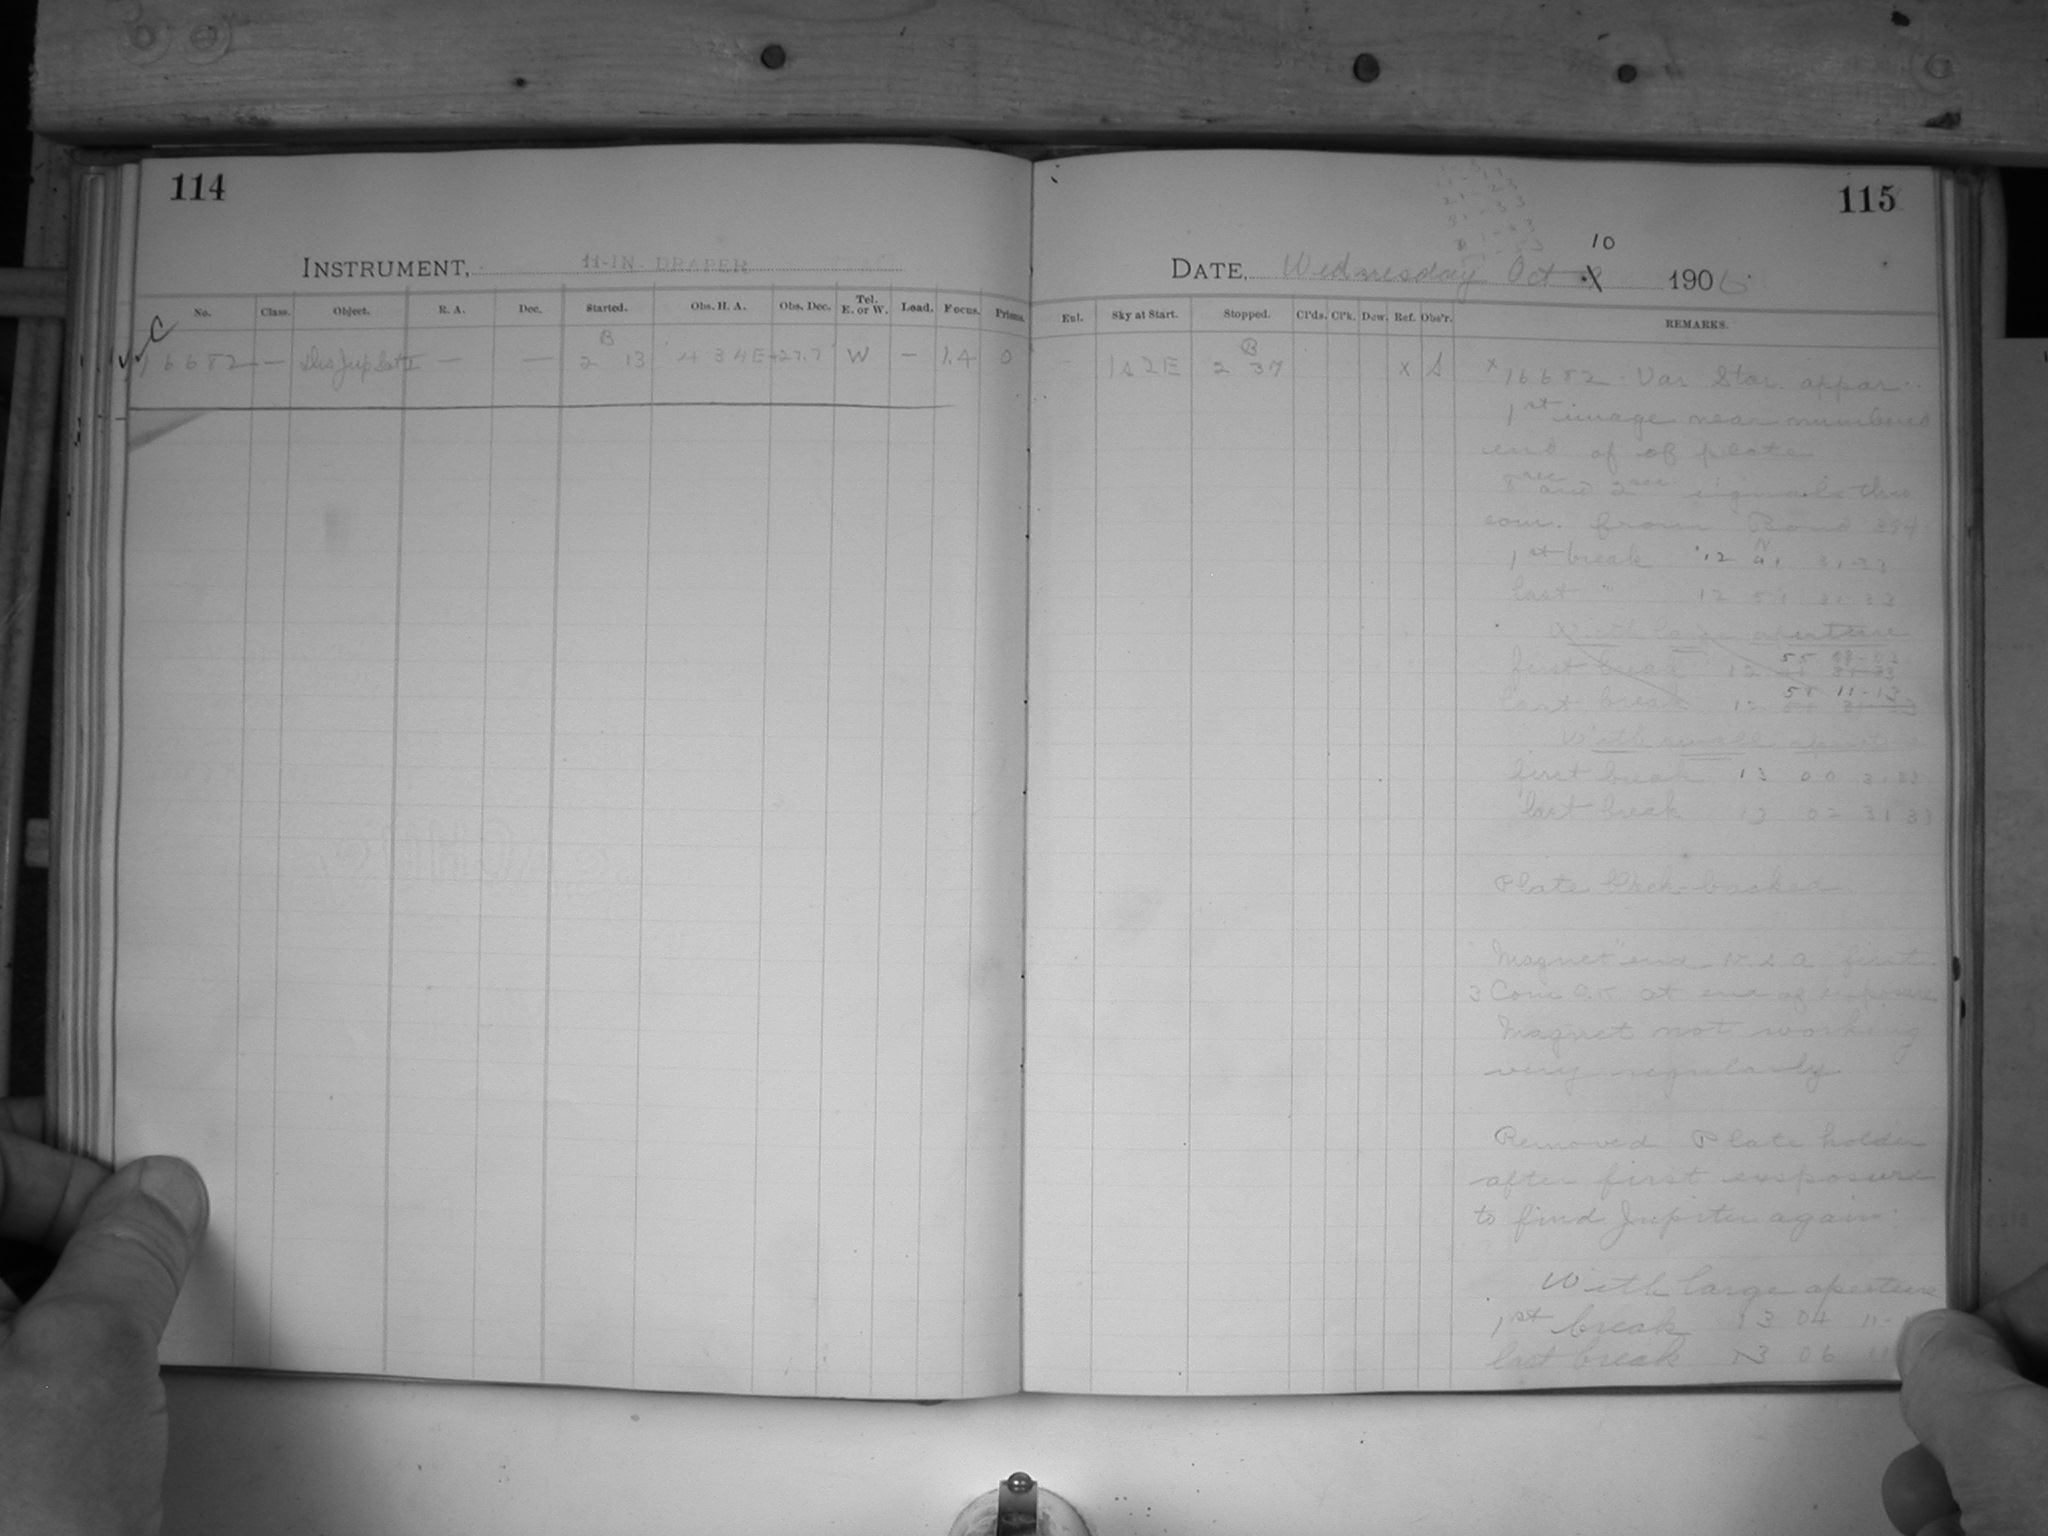 114
INSTRUMENT, 11-IN. DRAPER
No. Class. Object. R. A. Dec. Started. Obs. H. A. Obs. Dec. Tel. E. or W. Load. Focus. Prisms.
C
16682 — Jup Sat I — — B 2 13 4 34E +27.7 W — 1.4 0
115
DATE, Wednesday Oct 10 1906
Ext. Sky at Start. Stopped. Cl'ds. Cl'k. Dew. Ref. Obs'r. REMARKS.
1s2E B 2 37 x S
x 16682 Var Star appar.
1st image near numbered
end of of plate
8 sec and 2 sec signals thro
from Bond 394
1st break 12 41 31-33
last " 12 51 31 33
With aperture
first break 12 55
last break 12 11-13
With small
first break 13 00 31 33
last break 13 02 31 33
Plate backed
Magnet end first
3 Com O.K. at end of exposure
Magnet not working
very regularly
Removed Plate holder
after first exsposure
to find Jupiter again
With large aperture
1st break 13 04
last break 13 06